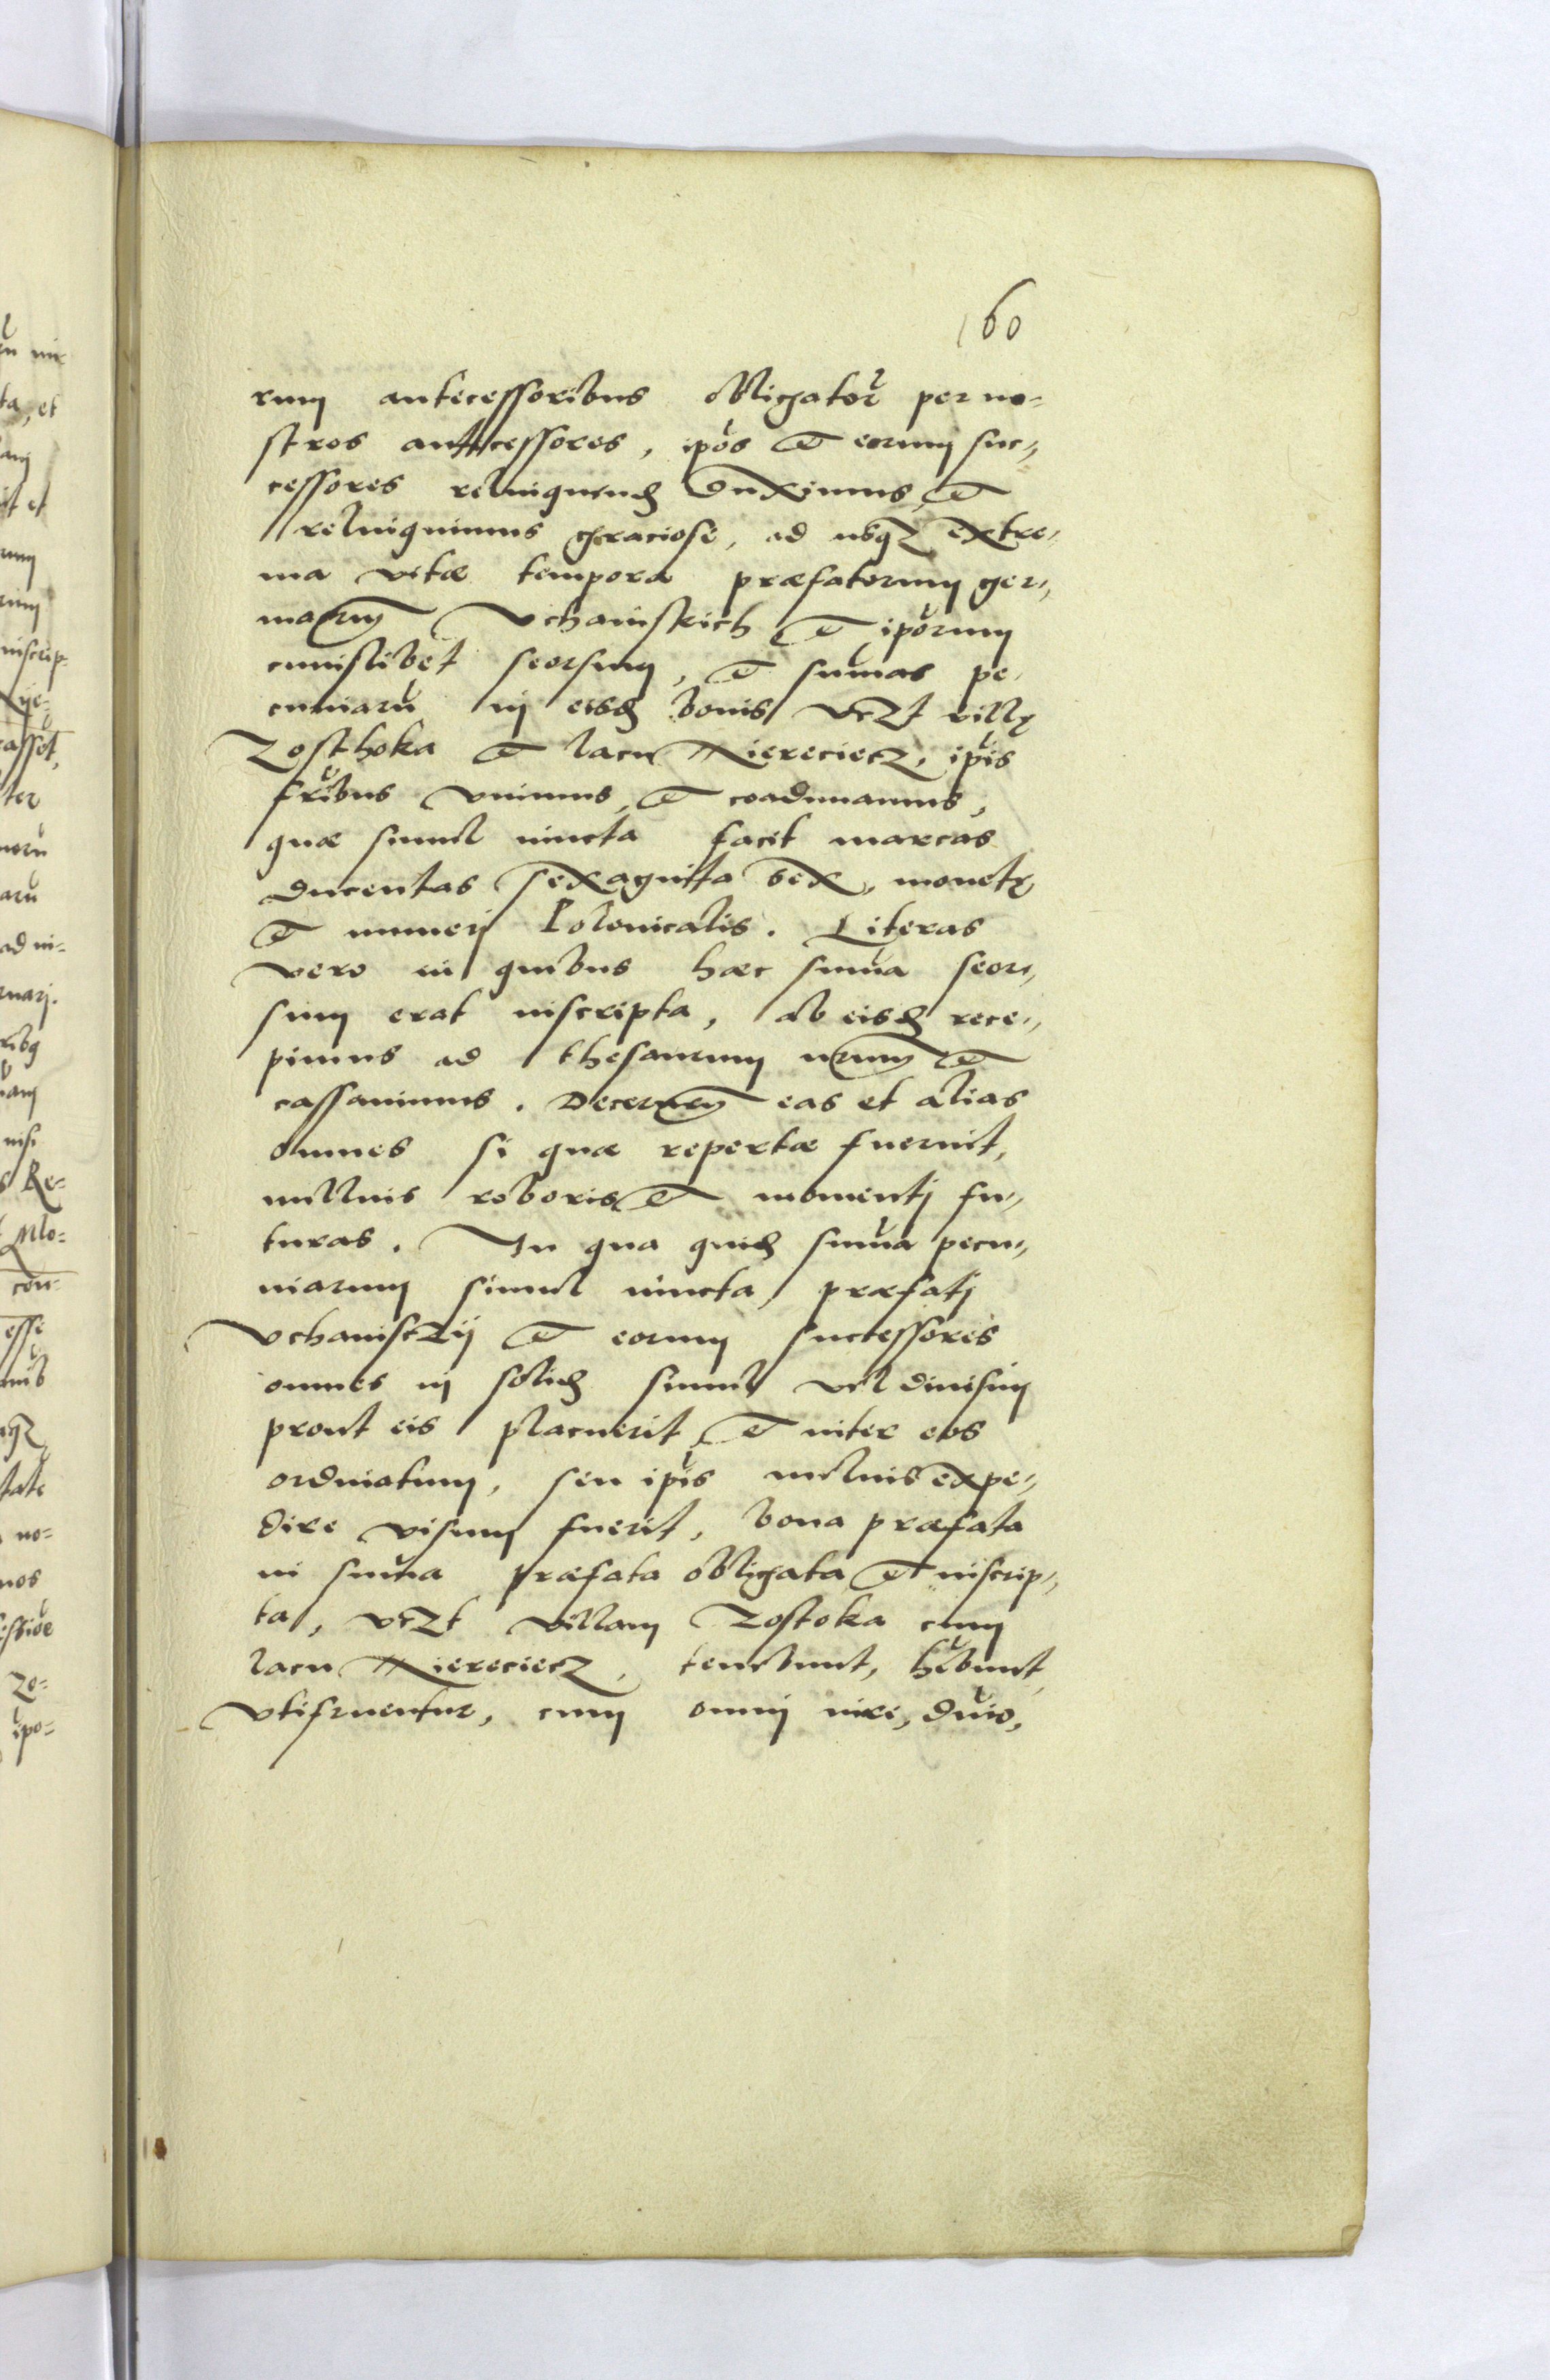 160
rum antecessoribus obligator̃ per no-
stros antecessores, ip̃os et eorum suc-
cessores relinquend duximus, et
relinquimus gratiose, ad usq₃ extre-
ma vitæ tempora præfatorum ger-
manorum Vchainskich et ip̃orum
cuiuslibet seorsum, et sum̃as pe-
cuniarũ in eisd bonis vczt villę
Zosthoka et lacu Miereciecz, ip̃is
fr̃ibus vnimus, et coadunamus,
quæ simul iuncta facit marcas
ducentas sexaginta sex, monetę
et numeri Polonicalis. Literas
vero in quibus hæc sum̃a seor-
sum erat inscripta, ab eisd rece-
pimus ad thesaurum nr̃um et
cassauimus. Decernen eas et alias
omnes si quæ repertæ fuerint,
nullius roboris et momenti fu-
turas. In qua quid sum̃a pecu-
niarum simul iuncta, præfati
Vchanisczij et eorum successores
omnes in solid simul vel diuisim
prout eis placuerit, et inter eos
ordinatum, seu ip̃is melius expe-
dire visum fuerit, bona præfata
in sum̃a præfata obligata et inscrip-
ta, vczt villam Zostoka cum
lacu Miereciecz, tenebunt, hẽbunt,
vtifruentur, cum omni iure, dñio,